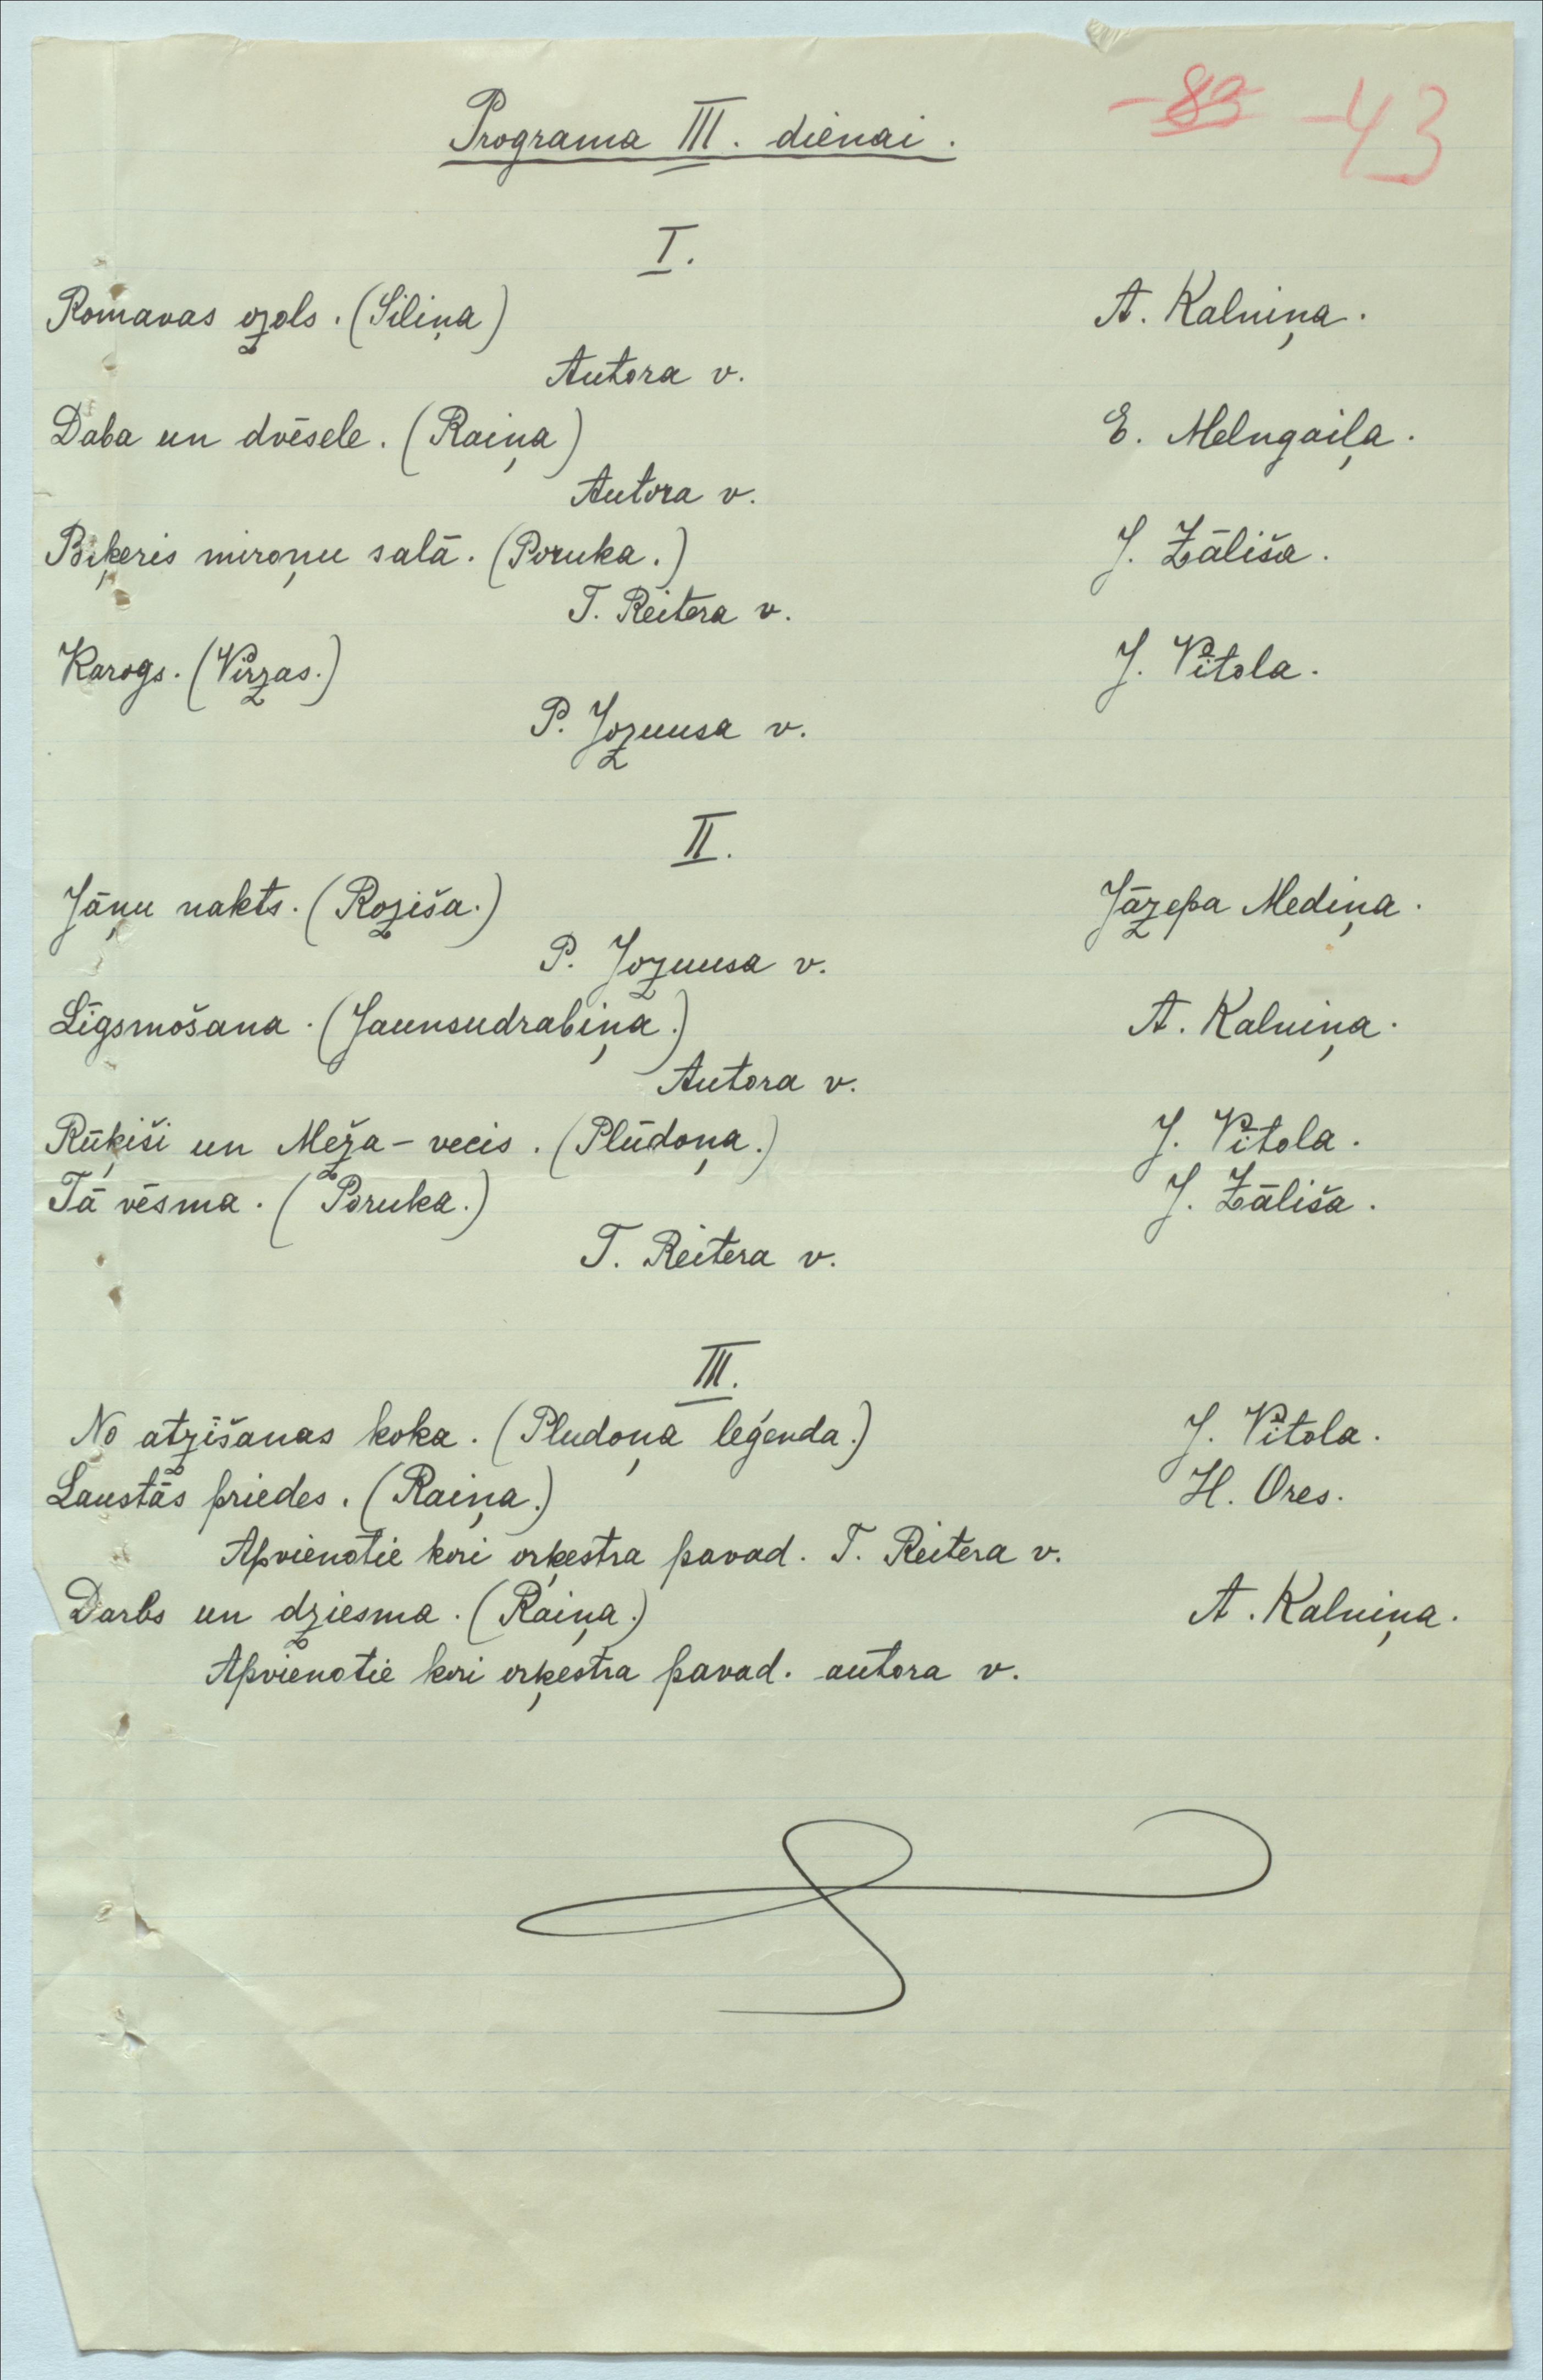 Programa III. dienai.
-83 -43
I.
Romavas ozols. (Siliņa) A. Kalniņa.
Autora v.
Daba un dvēsele. (Raiņa) E. Melngaiļa.
Autora v.
Biķeris miroņu salā. (Poruka.) J. Zāliša.
T. Reitera v.
Karogs. (Virzas.) J. Vītola.
P. Jozuusa v.
II.
Jāņu nakts. (Roziša.) Jāzepa Mediņa.
P. Jozuusa v.
Līgsmošana. (Jaunsudrabiņa.) A. Kalniņa.
Autora v.
Rūķiši un Meža-vecis. (Plūdoņa.) J. Vītola.
Tā vēsma. (Poruka.) J. Zāliša.
T. Reitera v.
III.
No atzīšanas koka. (Pludoņa leģenda.) J. Vītola.
Laustās priedes. (Raiņa.) H. Ores.
Apvienotie kori orķestra pavad. T. Reitera v.
Darbs un dziesma. (Raiņa.) A. Kalniņa.
Apvienotie kori orķestra pavad. autora v.